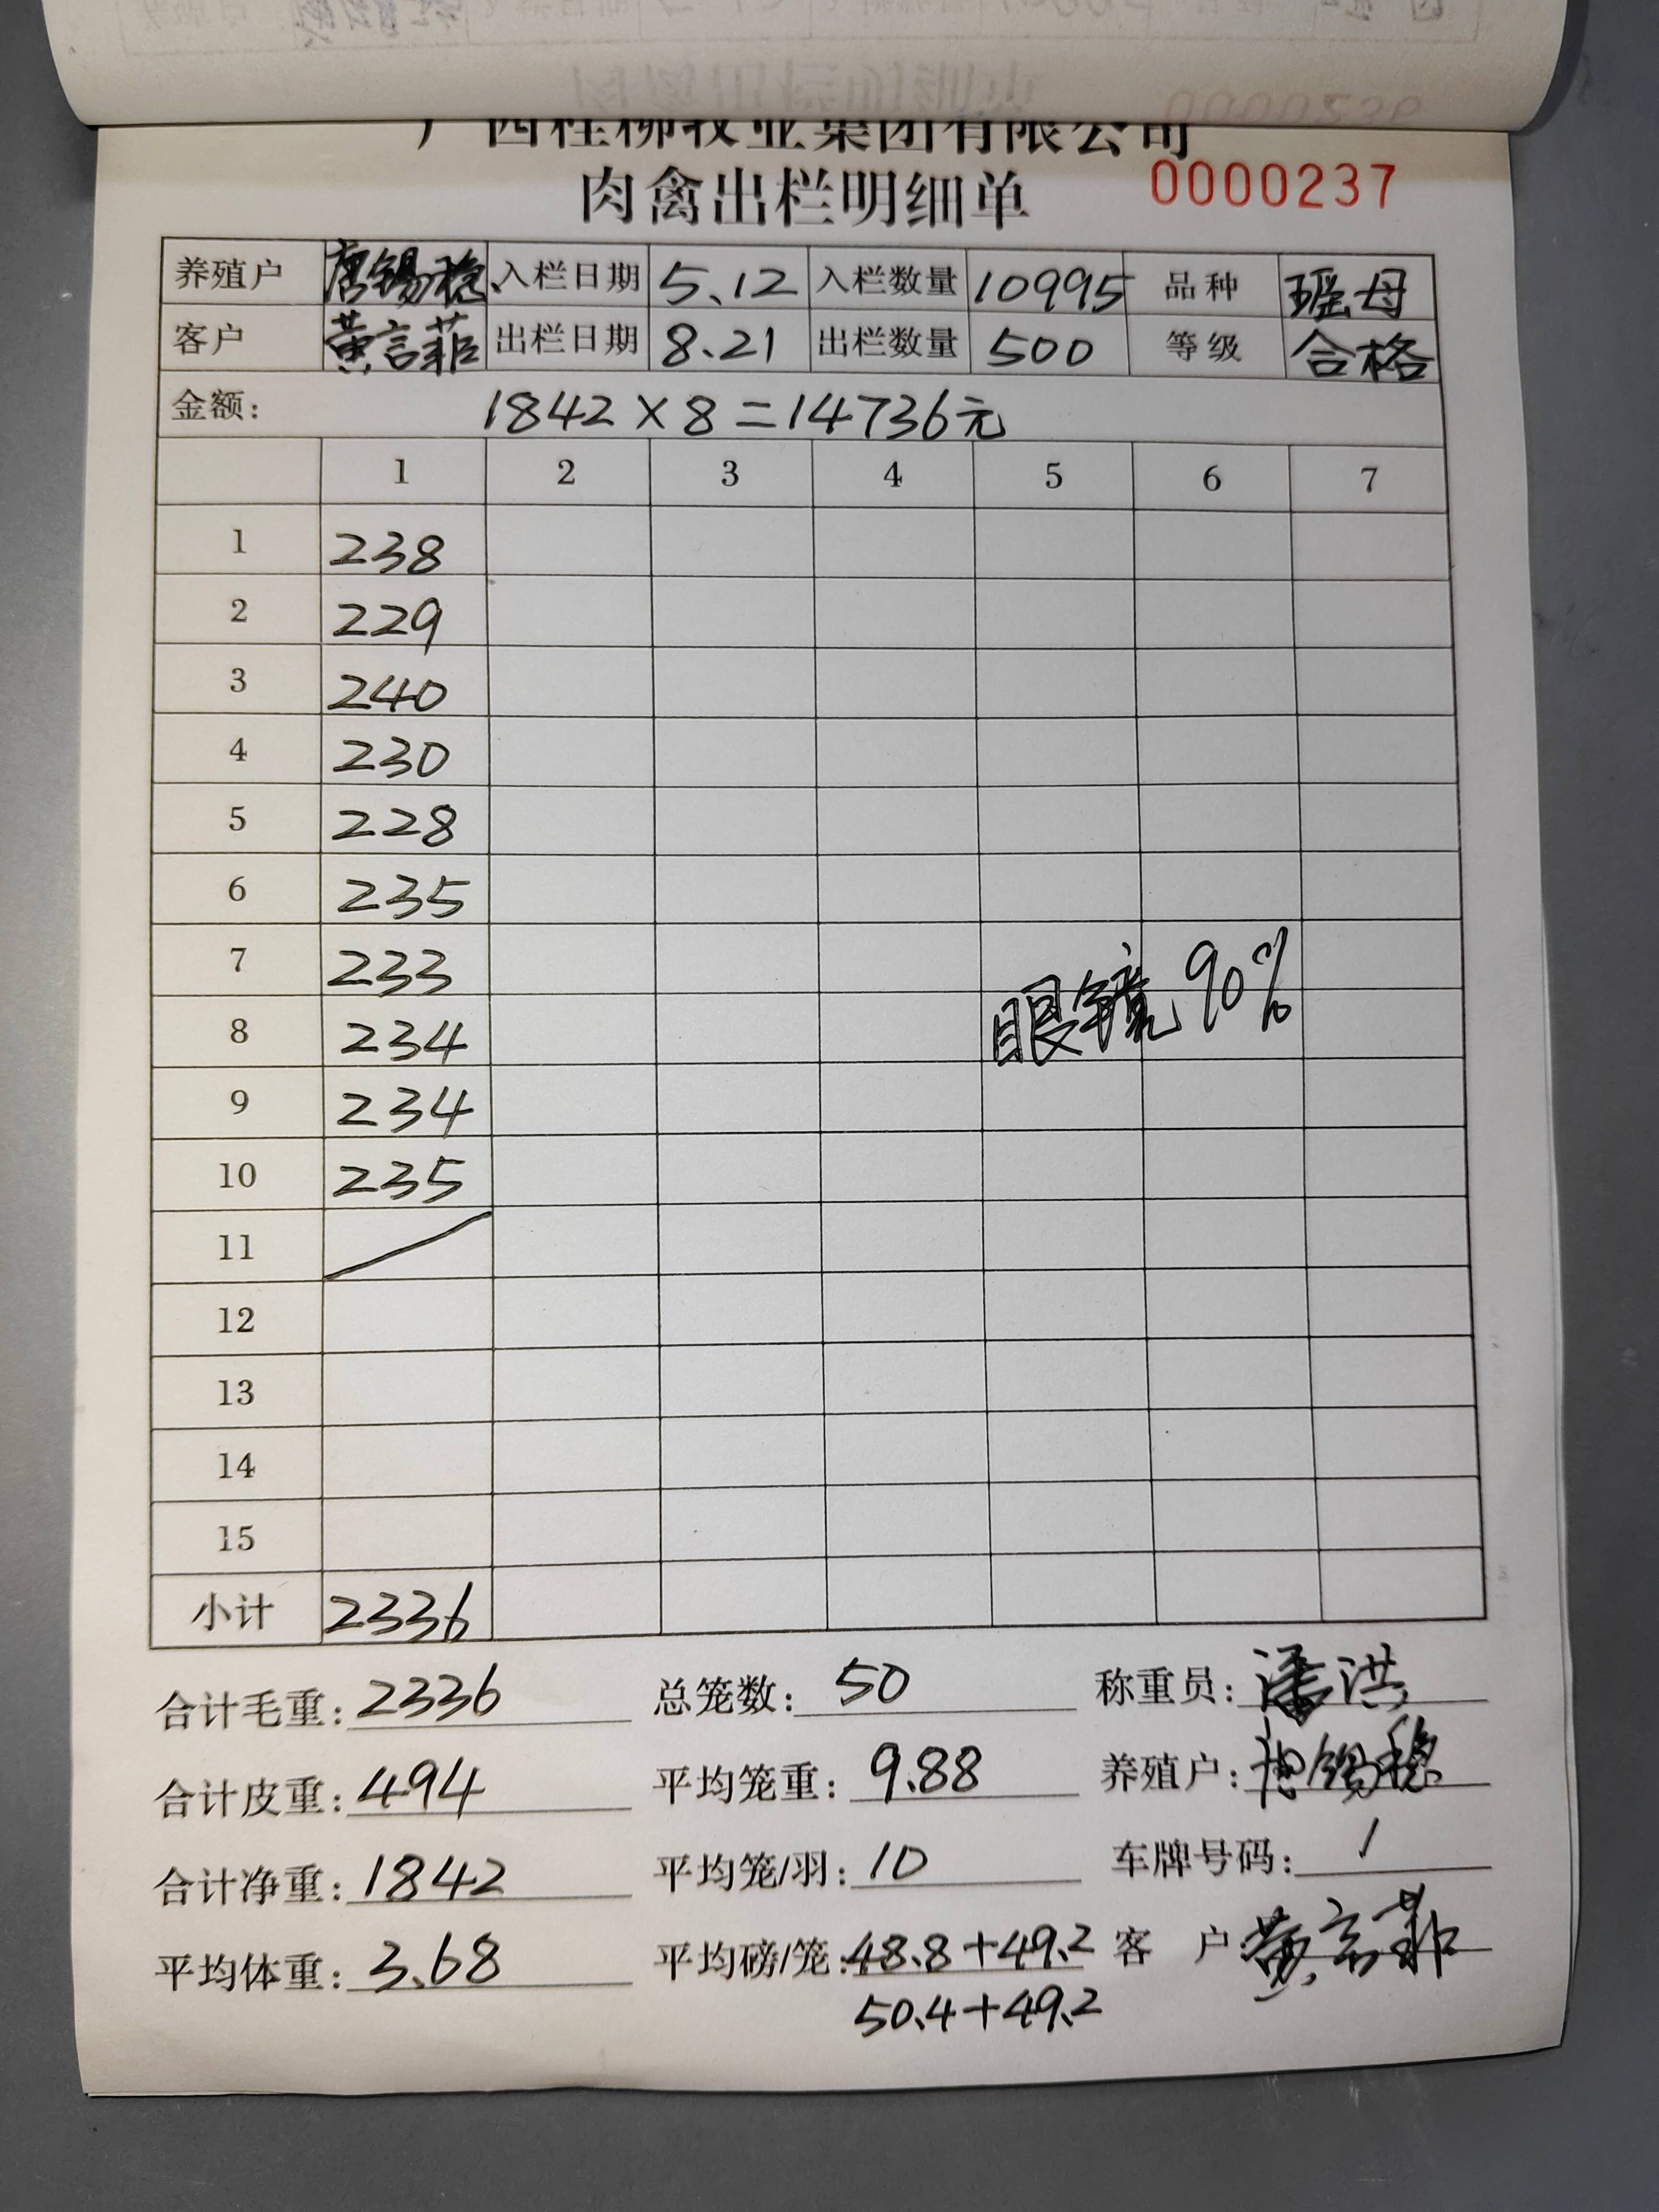 广西桂柳牧业集团有限公司
肉禽出栏明细单 0000237
养殖户 唐锡稳 入栏日期 5.12 入栏数量 10995 品种 瑶母
客户 黄言菲 出栏日期 8.21 出栏数量 500 等级 合格
金额: 1842×8=14736元
1 2 3 4 5 6 7
1 238
2 229
3 240
4 230
5 228
6 235
7 233
眼镜90%
8 234
9 234
10 235
11
12
13
14
15
小计 2336
合计毛重: 2336 总笼数: 50 称重员: 潘洪
合计皮重: 494 平均笼重: 9.88 养殖户: 唐锡稳
合计净重: 1842 平均笼/羽: 10 车牌号码: /
平均体重: 3.68 平均磅/笼: 48.8+49.2 客户: 黄言菲
50.4+49.2